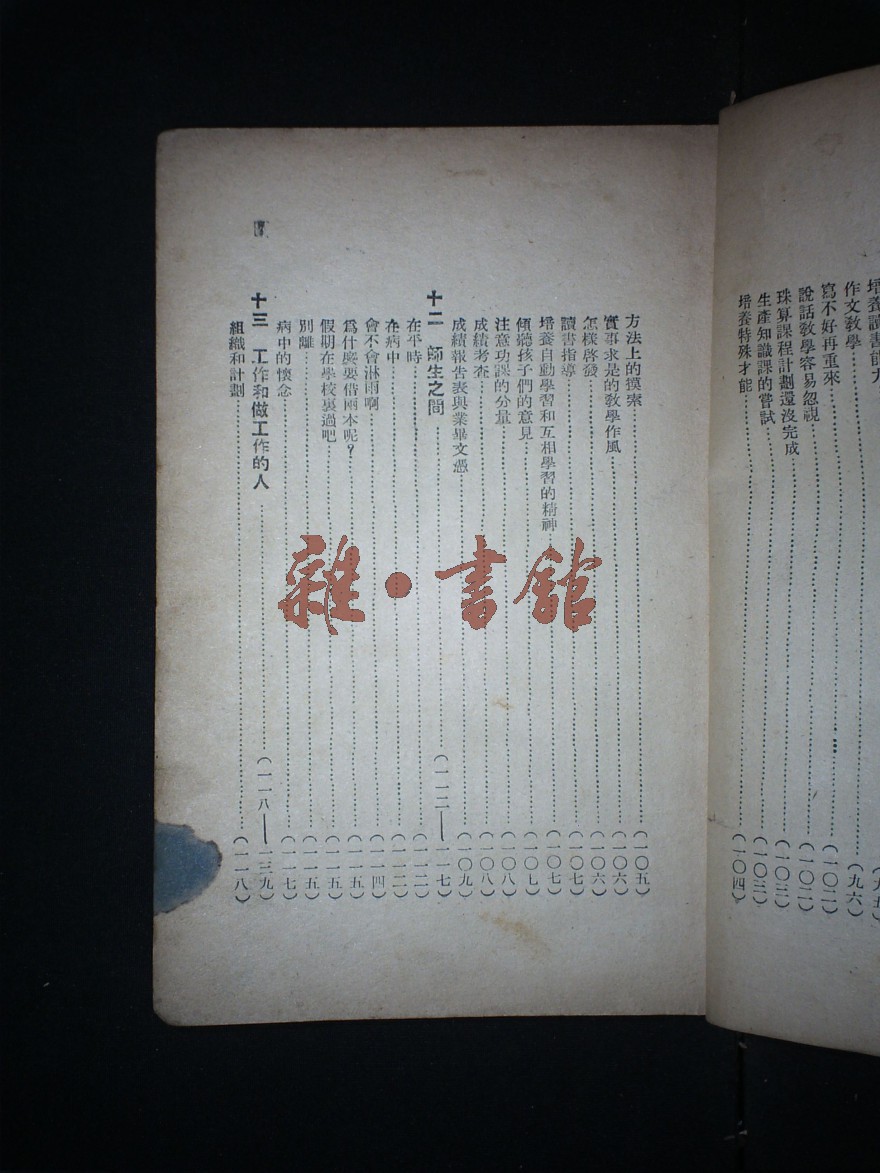 作文教學……(九六)
寫不好再重來……(一〇二)
說話教學容易忽視……(一〇二)
珠算課程計劃還沒完成……(一〇三)
生產知識課的嘗試……(一〇三)
培養特殊才能……(一〇四)
方法上的摸索……(一〇五)
實事求是的敎學作風……(一〇六)
怎樣啓發……(一〇六)
讀書指導……(一〇七)
培養自動學習和互相學習的精神……(一〇七)
傾聽孩子們的意見……(一〇七)
注意功課的分量……(一〇八)
成績考查……(一〇八)
成績報告表與業畢文憑……(一〇九)
十二 師生之間……(一一二—一一七)
在平時……(一一二)
在病中……(一一二)
會不會淋雨啊……(一一四)
爲什麽要借兩本呢?……(一一五)
假期在學校裏過吧……(一一五)
別離……(一一五)
病中的懷念……(一一七)
十三 工作和做工作的人……(一一八—一三九)
組織和計劃……(一一八)
雜·書館